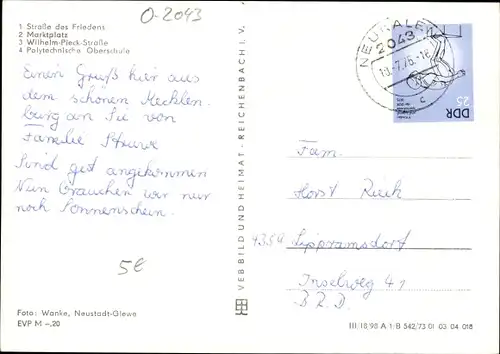 O-2043
1 Straße des Friedens
2 Marktplatz
3 Wilhelm-Pieck-Straße
4 Polytechnische Oberschule
Einen Gruß hier aus
dem schönen Mecklen
burg an Sie von
Familie Struwe
Sind gut angekommen
Nun brauchen wir nur
noch Sonnenschein.
5€
Foto: Wanke, Neustadt-Glewe
EVP M –,20
VEB BILD UND HEIMAT · REICHENBACH I. V.
NEUKALEN
2043
10.-7.75.-18
c
25
DDR
Fam.
Horst Rieck
4359 Lippramsdorf
Inselweg 41
B R D.
III/18/98 A 1/B 542/73 01 03 04 018